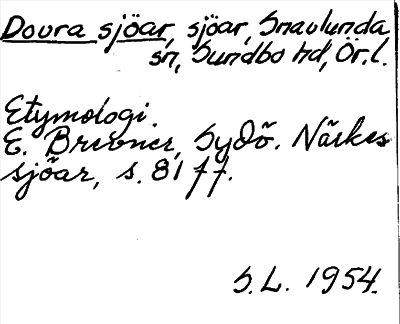 Dovra sjöar, sjöar, Snavlunda
sn, Sundbo hd, Ör.l.
Etymologi.
E. Brevner, Sydö. Närkes
sjöar, s. 81 ff.
S.L. 1954.